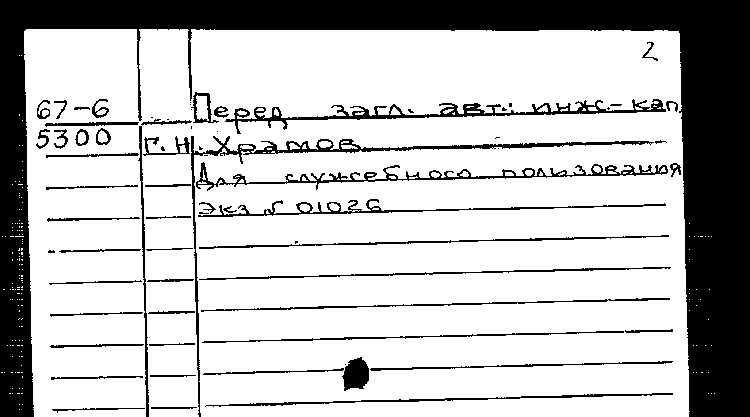 2
67-6 Перед загл. авт.: инж.-кап.
5300 Г. Н. Храмов
Для служебного пользования
Экз № 01026